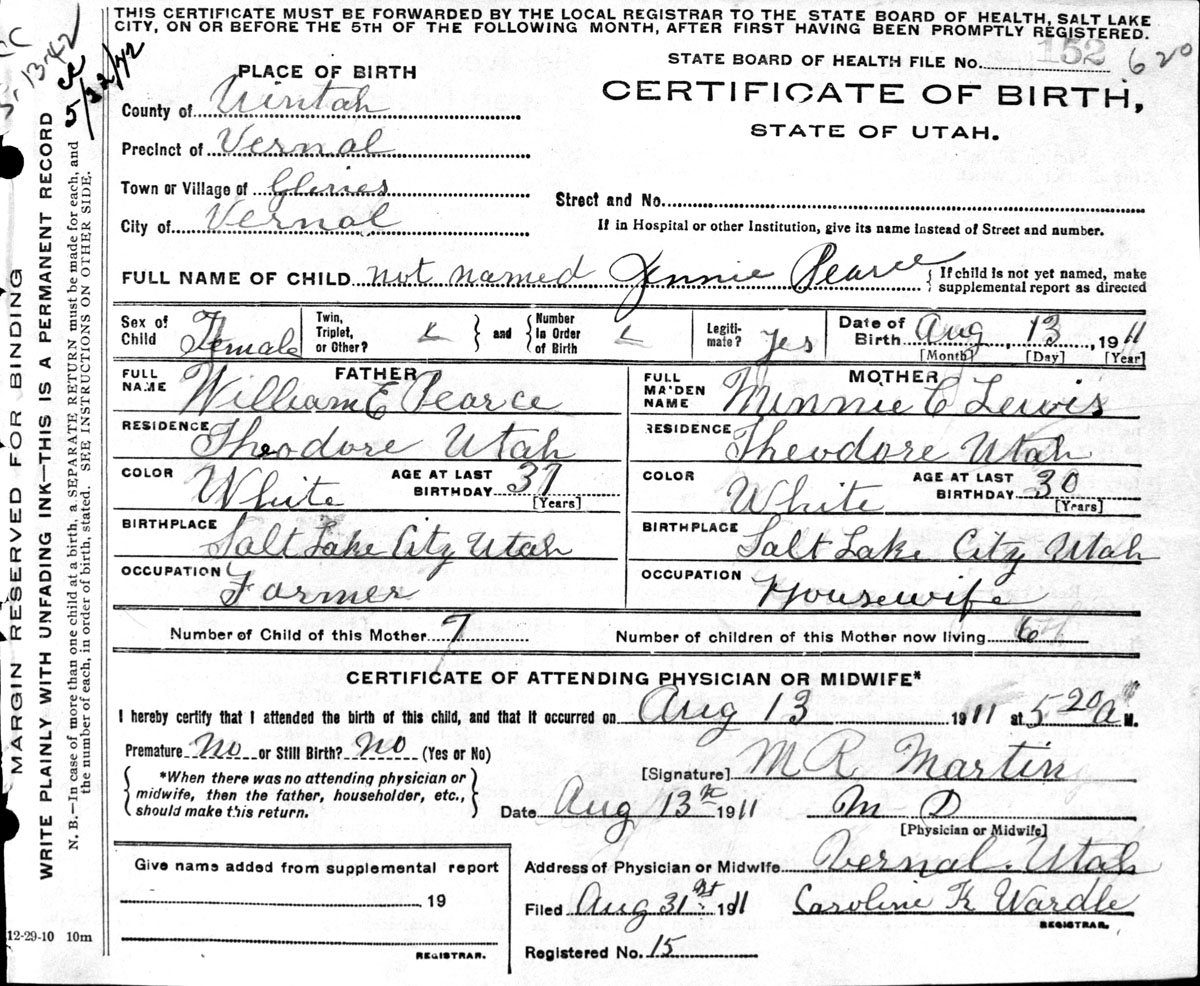 THIS CERTIFICATE MUST BE FORWARDED BY THE LOCAL REGISTRAR TO THE STATE BOARD OF HEALTH, SALT LAKE
CITY, ON OR BEFORE THE 5TH OF THE FOLLOWING MONTH, AFTER FIRST HAVING BEEN PROMPTLY REGISTERED.
STATE BOARD OF HEALTH FILE No. 152 620
CERTIFICATE OF BIRTH,
STATE OF UTAH.
PLACE OF BIRTH
County of Uintah
Precinct of Vernal
Town or Village of
City of Vernal
Street and No.
If in Hospital or other Institution, give its name instead of Street and number.
FULL NAME OF CHILD not named Jennie Pearce { If child is not yet named, make
supplemental report as directed
Sex of Child Female
Twin, Triplet, or Other?
and
Number in Order of Birth
Legitimate? Yes
Date of Birth Aug 13, 1911
[Month] [Day] [Year]
FATHER
FULL NAME William E Pearce
RESIDENCE Theodore Utah
COLOR White AGE AT LAST BIRTHDAY 37
[Years]
BIRTHPLACE Salt Lake City Utah
OCCUPATION Farmer
MOTHER
FULL MAIDEN NAME Minnie C Lewis
RESIDENCE Theodore Utah
COLOR White AGE AT LAST BIRTHDAY 30
[Years]
BIRTHPLACE Salt Lake City Utah
OCCUPATION Housewife
Number of Child of this Mother 7 Number of children of this Mother now living 6
CERTIFICATE OF ATTENDING PHYSICIAN OR MIDWIFE*
I hereby certify that I attended the birth of this child, and that it occurred on Aug 13 1911 at 5 20 a M.
Premature No or Still Birth? No (Yes or No)
*When there was no attending physician or
midwife, then the father, householder, etc.,
should make this return.
[Signature] M R Martin
Date Aug 13th 1911 M D
[Physician or Midwife]
Give name added from supplemental report
19
REGISTRAR.
Address of Physician or Midwife Vernal Utah
Filed Aug 31st 1911 Caroline K Wardle
REGISTRAR.
Registered No. 15
12-29-10 10m
MARGIN RESERVED FOR BINDING
WRITE PLAINLY WITH UNFADING INK—THIS IS A PERMANENT RECORD
N. B.—In case of more than one child at a birth, a SEPARATE RETURN must be made for each, and
the number of each, in order of birth, stated. SEE INSTRUCTIONS ON OTHER SIDE.